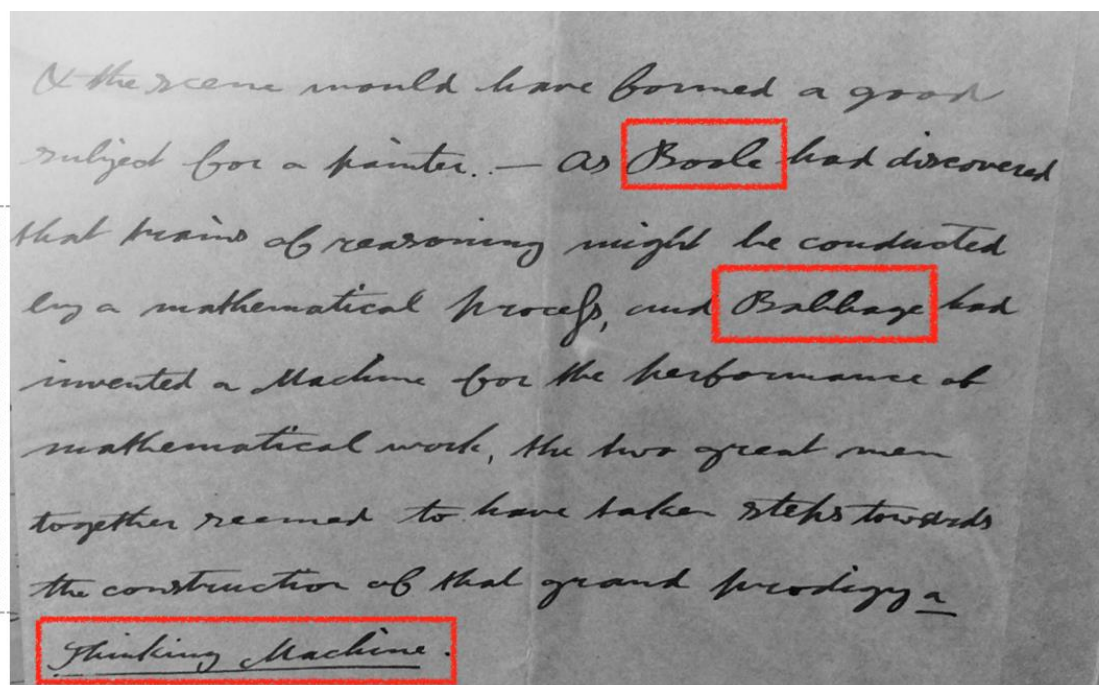 & the scene would have formed a good
subject for a painter. — As Boole had discovered
that trains of reasoning might be conducted
by a mathematical process, and Babbage had
invented a Machine for the performance of
mathematical work, the two great men
together seemed to have taken steps towards
the construction of that grand prodigy a
Thinking Machine.